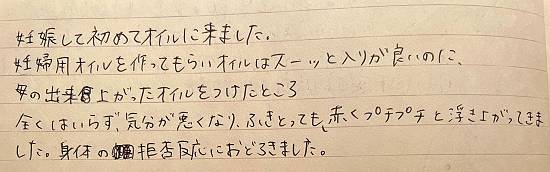 妊娠して初めてオイルに来ました。
妊婦用オイルを作ってもらいオイルはスーッと入りが良いのに、
の出来上がったオイルをつけたところ
全くはいらず、気分が悪くなり、ふきとっても、赤くプチプチと浮き上がってきま
した。身体の拒否反応におどろきました。